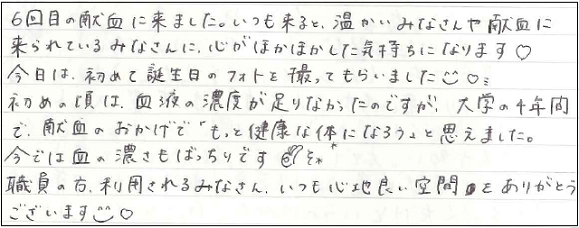 6回目の献血に来ました。いつも来ると、温かいみなさんや献血に
来られているみなさんに、心がほかほかした気持ちになります♡
今日は、初めて誕生日のフォトを撮ってもらいました☺♡
初めの頃は、血液の濃度が足りなかったのですが、大学の4年間
で、献血のおかげで「もっと健康な体になろう」と思えました。
今では血の濃さもばっちりです
職員の方、利用されるみなさん、いつも心地良い空間をありがとう
ございます☺♡